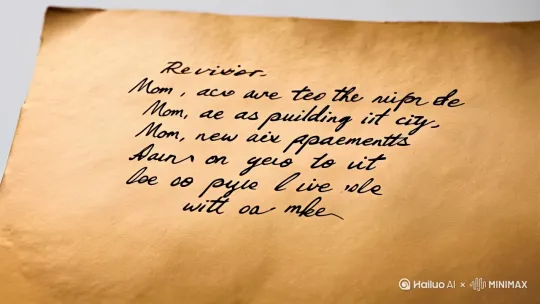 Revivior.
Mom, acw are teo the nipr de
Mom, ae as puilding iit city,
Mom, new aix apaementts
on yero to uit
loe oo pyre l ive
witt oa mke
Hailuo AI × MINIMAX